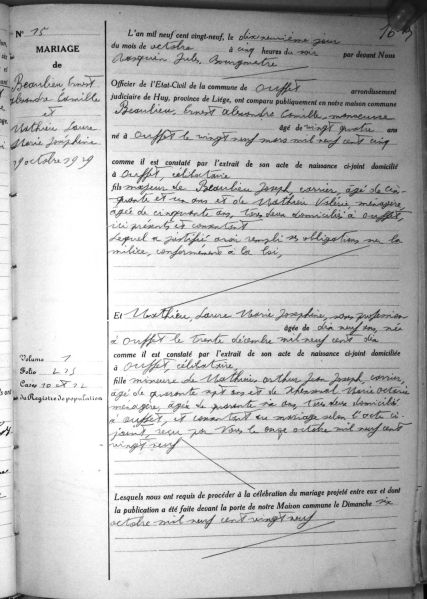 N° 15
MARIAGE
de
Beaulieu, Ernest
Alexandre Camille
et
Mathieu Laure
Marie Joséphine
19 octobre 1929
Volume 1
Folio 213
Cases 10 et 12
du Registre de population
16
L'an mil neuf cent vingt-neuf, le dix neuvième jour
du mois de octobre à cinq heures du soir par devant Nous
Jules, Bourgmestre
Officier de l'Etat-Civil de la commune de Ouffet arrondissement
judiciaire de Huy, province de Liége, ont comparu publiquement en notre maison commune
Beaulieu, Ernest Alexandre Camille, manoeuvre
âgé de vingt quatre ans
né à Ouffet le vingt neuf mars mil neuf cent cinq
comme il est constaté par l'extrait de son acte de naissance ci-joint domicilié
à Ouffet, célibataire
fils majeur de Beaulieu Joseph, carrier, âgé de cin-
quante et un ans et de Mathieu Valérie, ménagère,
âgée de cinquante ans, tous deux domiciliés à Ouffet,
ici présents et consentant
Lequel a justifié avoir rempli ses obligations sur la
milice, conformément à la loi,
Et Mathieu, Laure Marie Joséphine, sans profession
âgée de dix neuf ans, née
à Ouffet le trente décembre mil neuf cent dix
comme il est constaté par l'extrait de son acte de naissance ci-joint domiciliée
à Ouffet, célibataire,
fille mineure de Mathieu Arthur Jean Joseph, carrier,
âgé de quarante sept ans et de Marie Octavie
ménagère, âgée de quarante ans, tous deux domiciliés
à Ouffet, et consentant au mariage selon l'acte ci-
joint, reçu par Nous le onze octobre mil neuf cent
vingt neuf
Lesquels nous ont requis de procéder à la célébration du mariage projeté entre eux et dont
la publication a été faite devant la porte de notre Maison commune le Dimanche six
octobre mil neuf cent vingt neuf